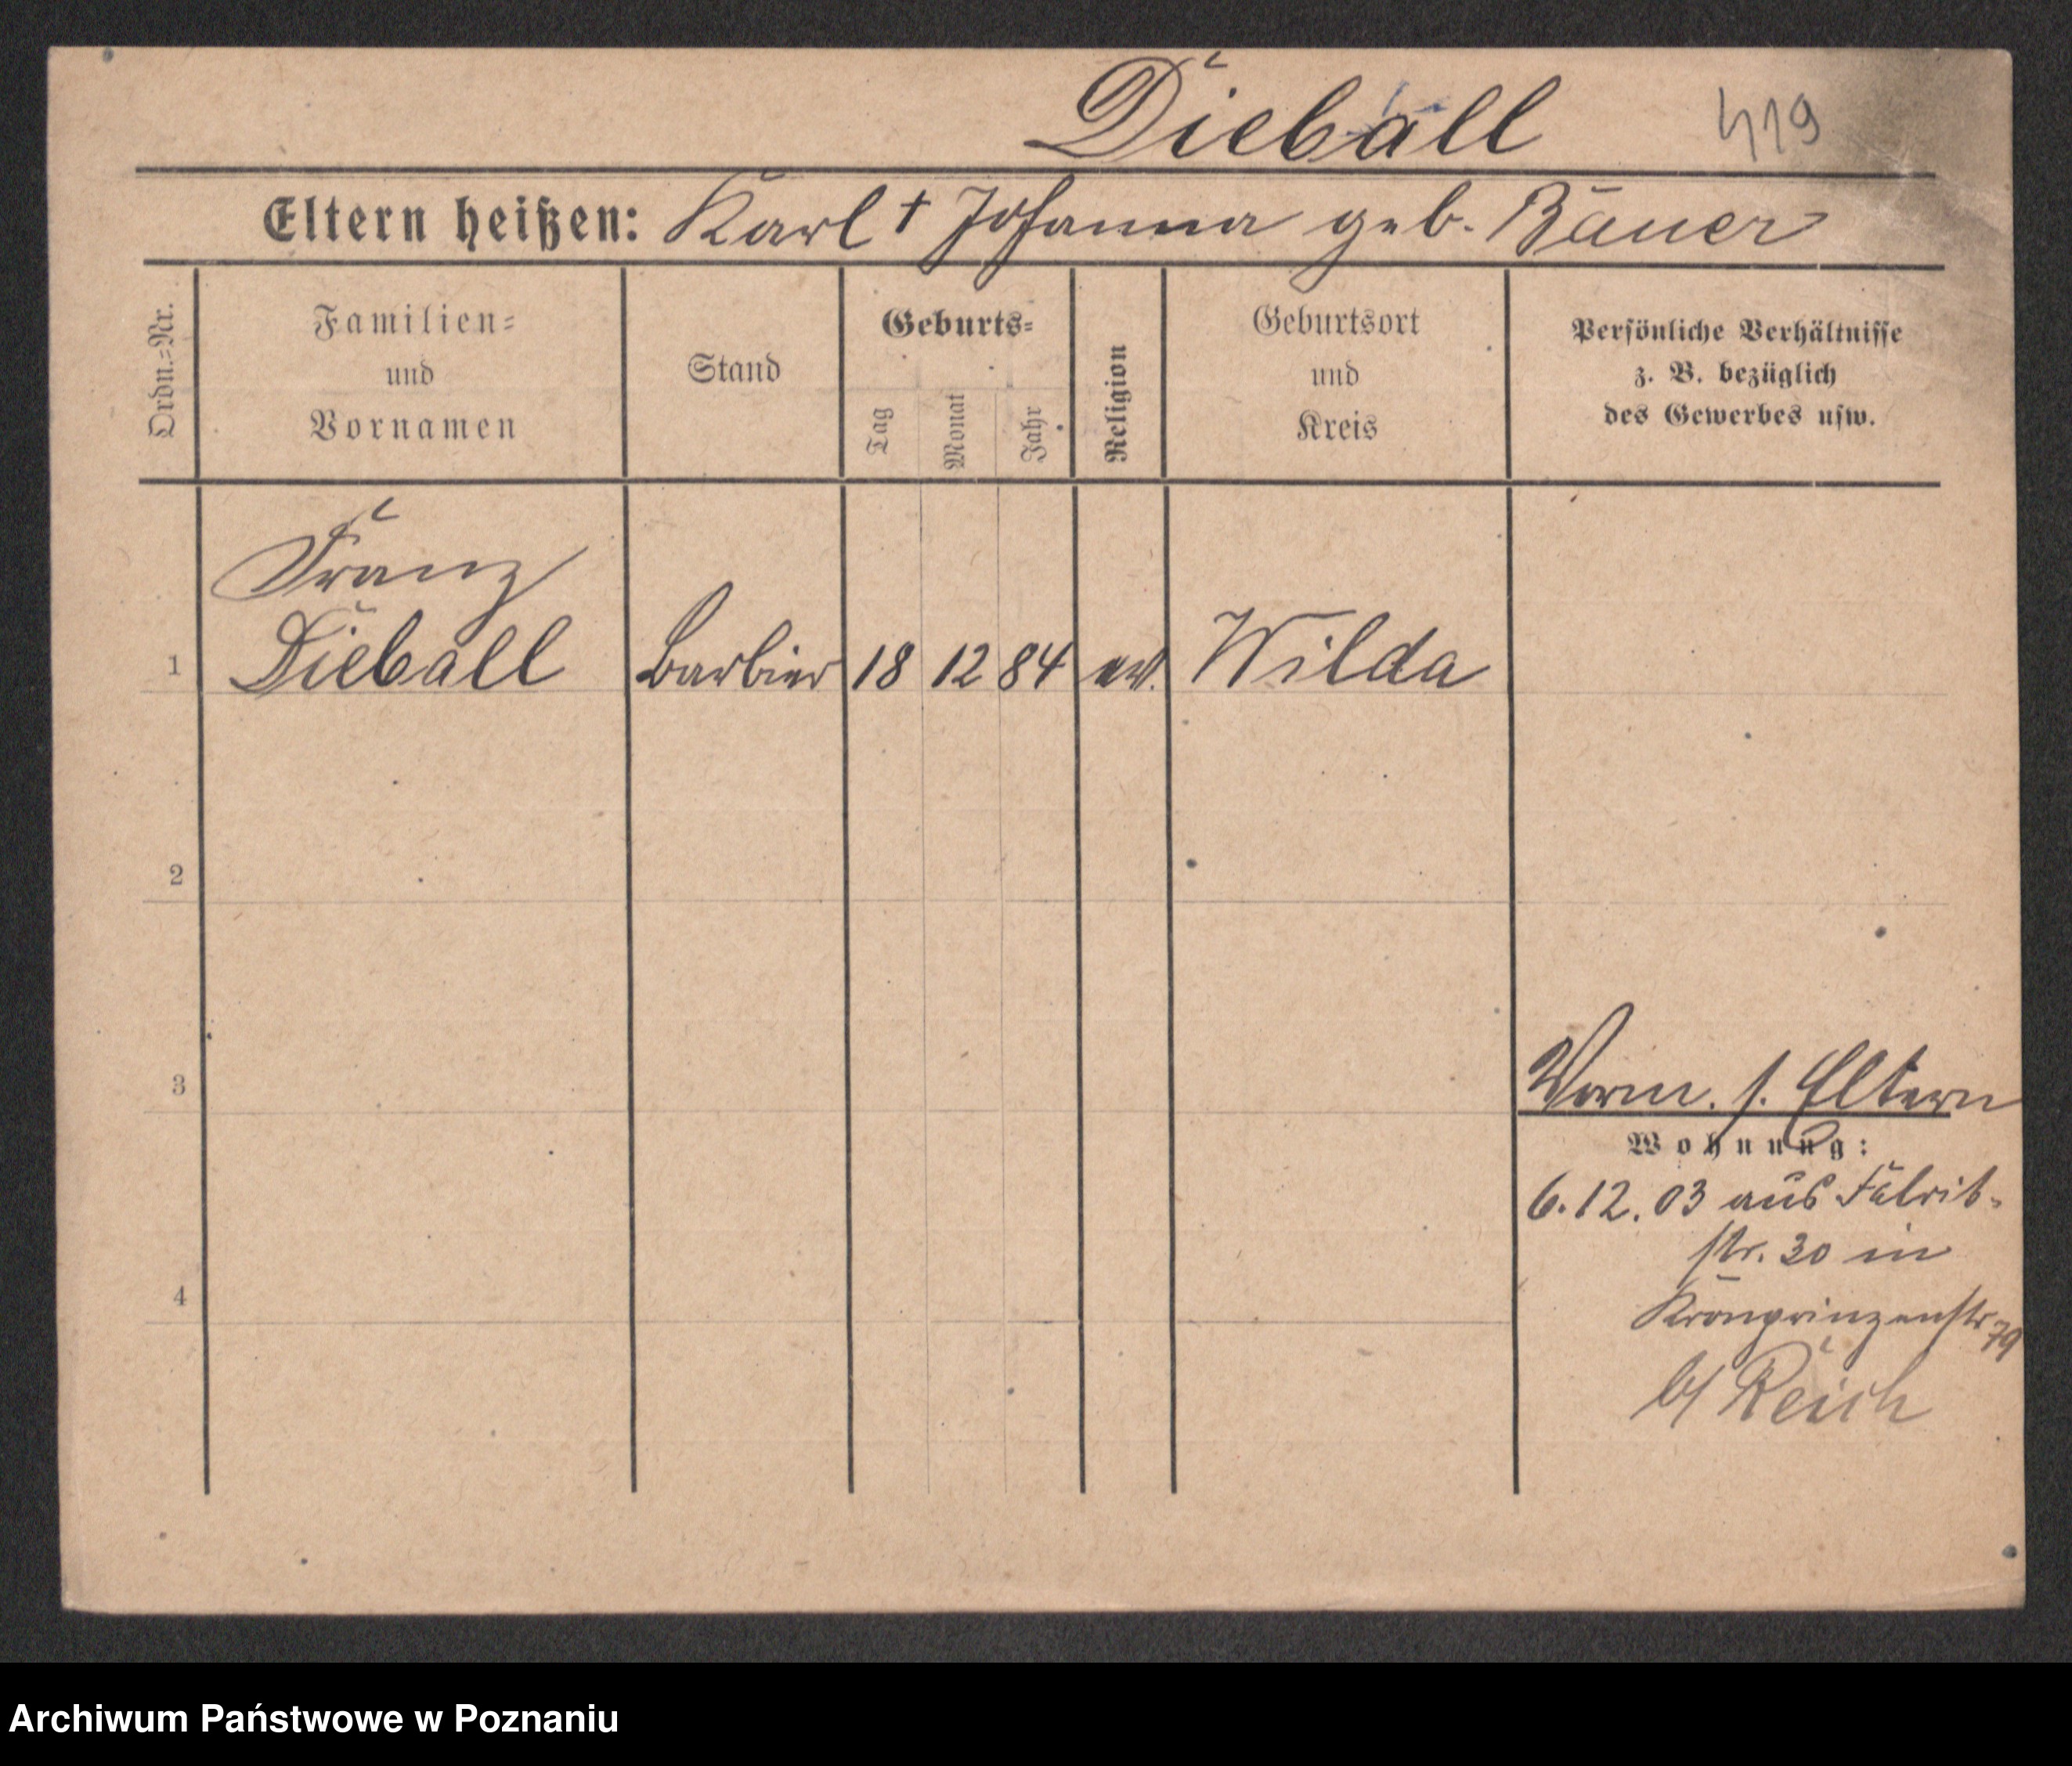 Dieball 419
Eltern heißen: Karl † Johanna geb. Bauer
Ordn.=Nr.
Familien=
und
Vornamen
Stand
Geburts=
Tag
Monat
Jahr
Religion
Geburtsort
und
Kreis
Persönliche Verhältnisse
z. B. bezüglich
des Gewerbes usw.
Franz
1 Dieball Barbier 18 12 84 ev. Wilda
2
3
4
Vorm. s. Eltern
Wohnung:
6.12.03 aus Fabrik-
str. 30 in
Kronprinzenstr 79
b/ Reich
Archiwum Państwowe w Poznaniu